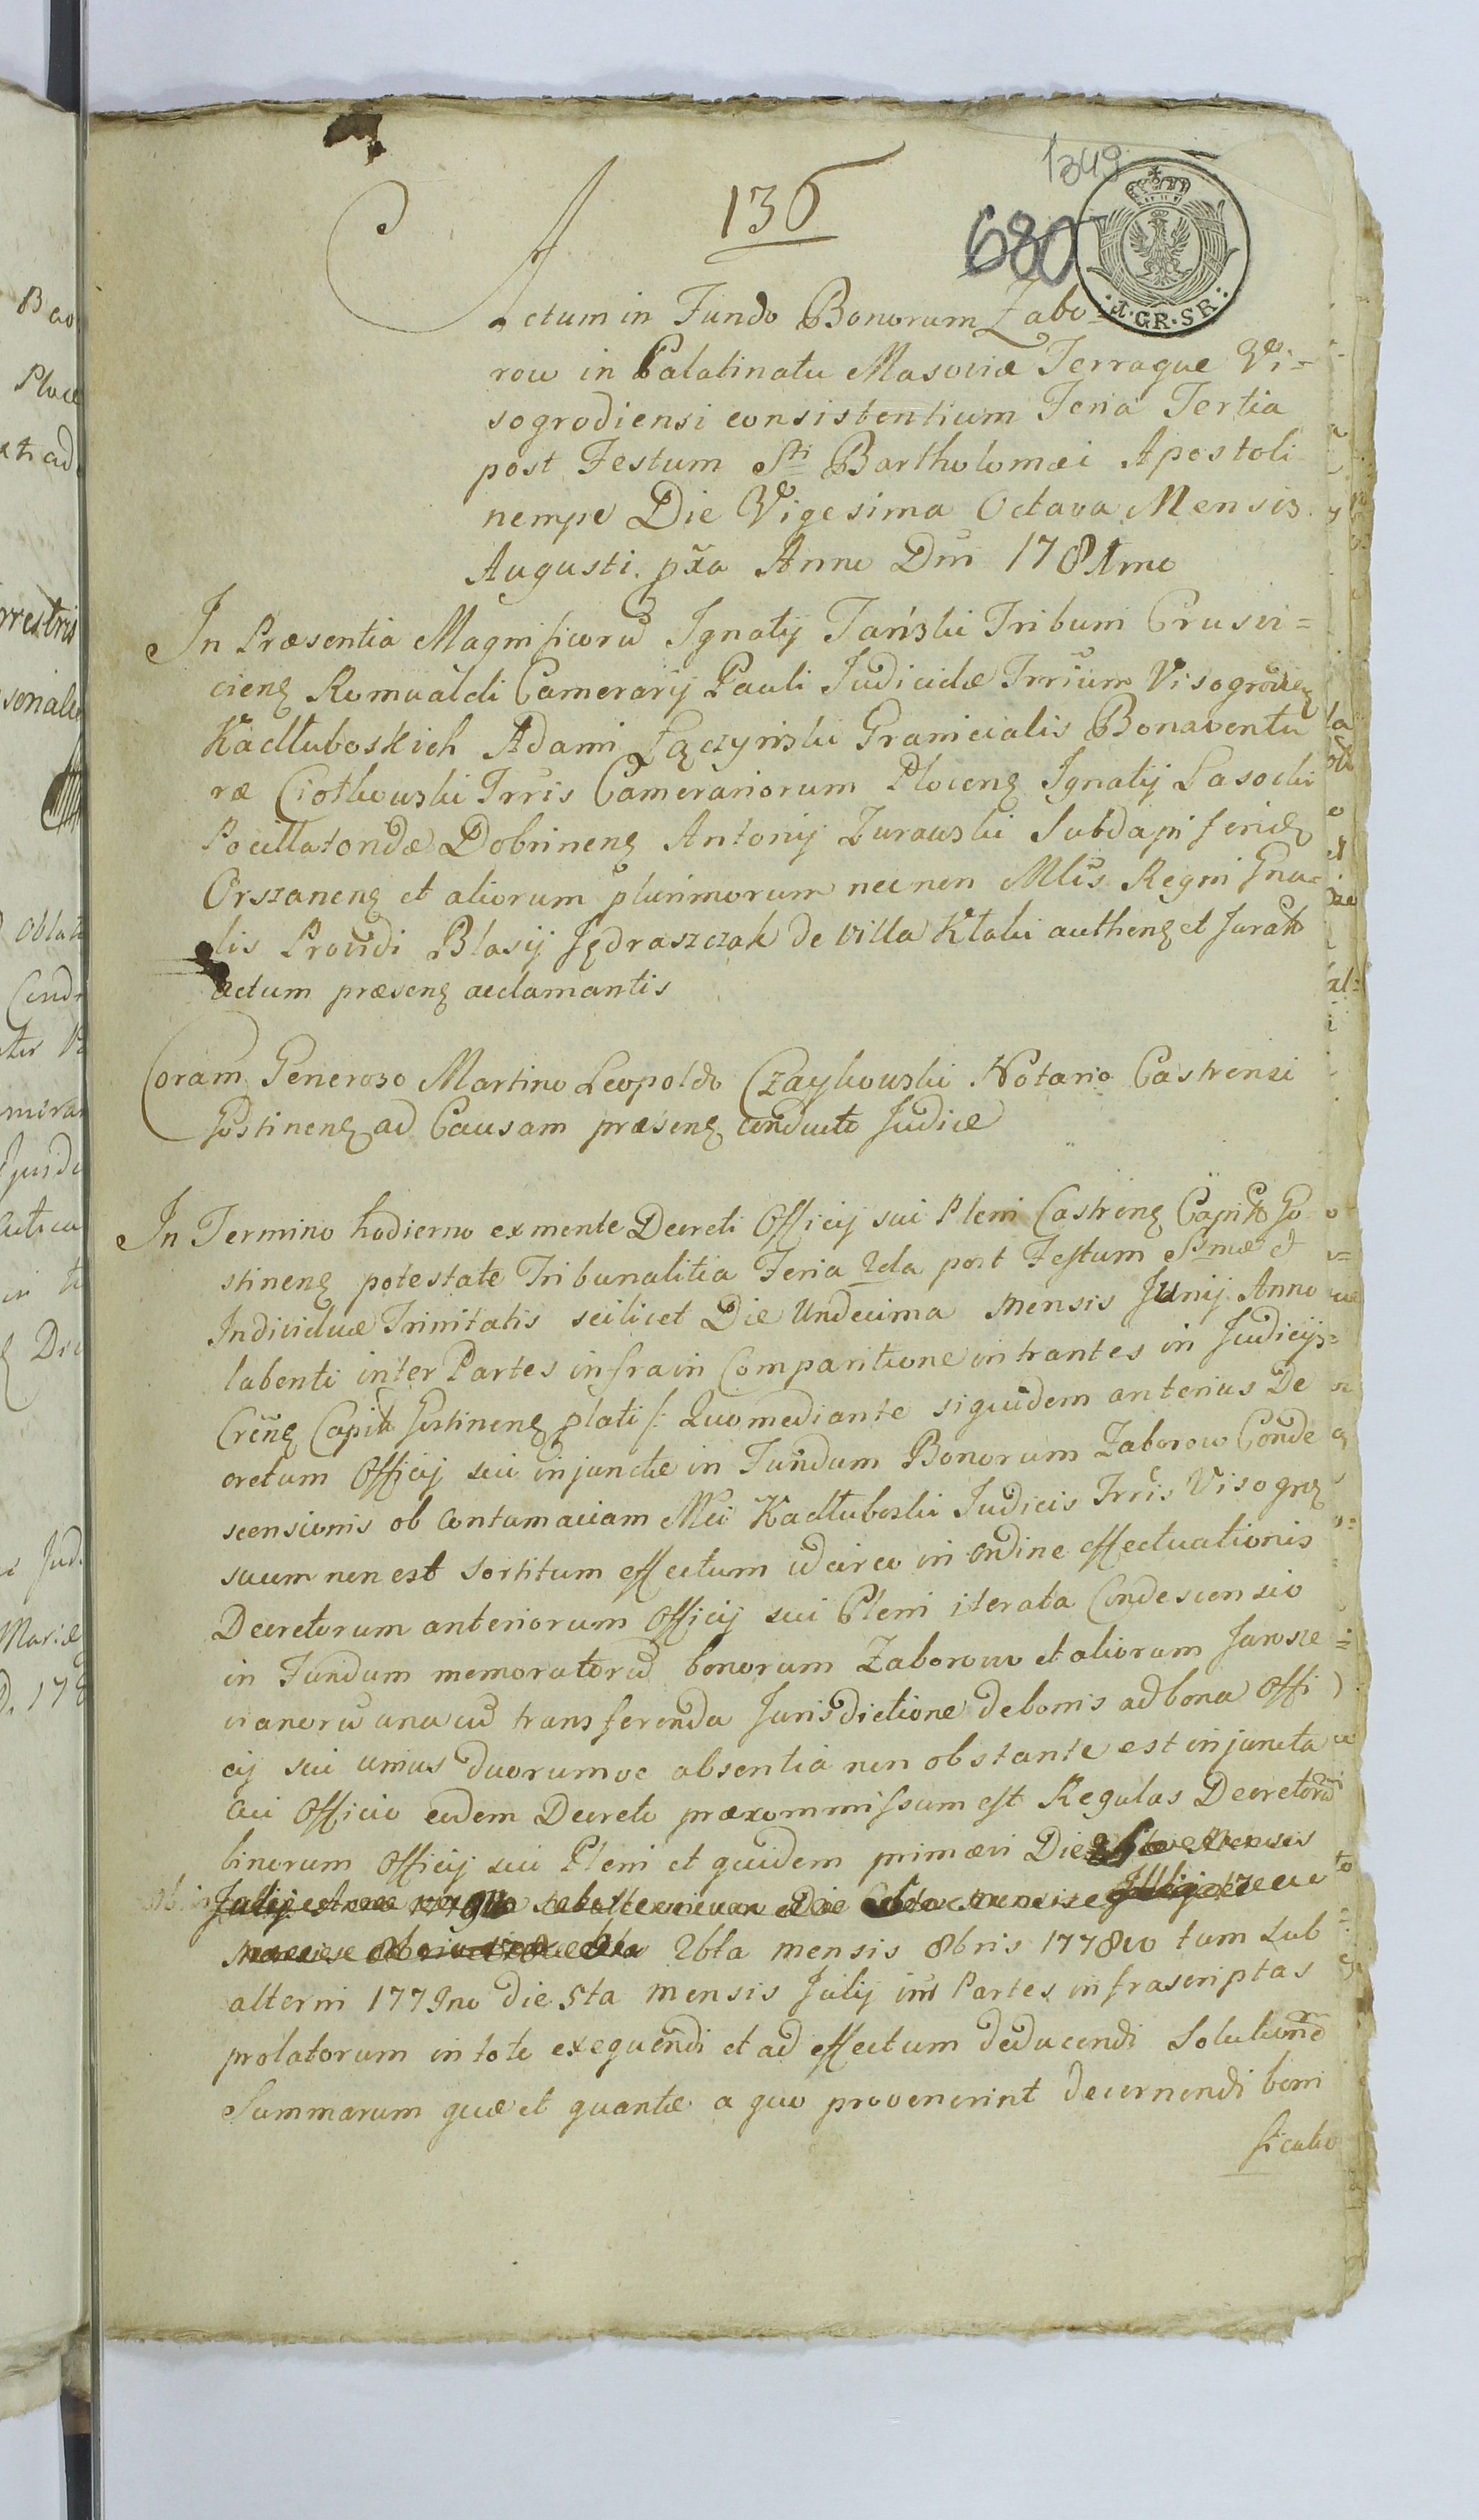 136
1349
680
J. GR. SR.
Actum in Fundo Bonorum Zabo=
row in Palatinatu Masoviæ Terraque Vi=
sogrodiensi consistentium Feria Tertia
post Festum Sti Bartholomæi Apostoli
nempe Die Vigesima Octava Mensis
Augusti pxa Anno Dni 1781mo
In Præsentia Magnificorũ Ignatij Tański Tribuni Crusvi=
cienȝ Romualdi Camerarij Pauli Judicidæ Trrium Visogrodienȝ
Kadłuboskich Adami Łączyński Granicialis Bonaventu
ræ Ciołkowski Trris Camerariorum Plocenȝ Ignatij Lasocki
Pocillatoridæ Dobrinenȝ Antonij Zurawski Subdapiferidæ
Orszanenȝ et aliorum plurimorum necnon Mlis Regni Gna=
lis Providi Blasij Jędraszczak de Villa Kłaki authenȝ et Jurati
actum præsenȝ acclamantis
Coram Generoso Martino Leopoldo Czaykowski Notario Castrensi
Gostinenȝ ad Causam præsenȝ conducto Judice
In Termino hodierno ex mente Decreti Officij sui Pleni Castrenȝ Capitt Go
stinenȝ potestate Tribunalitia Feria 2da post Festum Ssmæ et
Individuæ Trinitatis scilicet Die Undecima Mensis Junij Anno
labenti inter Partes infra in Comparitione intrantes in Judicijs=
Crenȝ Capitt Gostinenȝ plati /: Quo mediante siquidem anterius De
cretum Officij sui injunctæ in Fundum Bonorum Zaborow Conde
scensionis ob Contumaciam Mci Kadłuboski Judicis Trris Visogrȝ
suum non est sortitum effectum idcirco in ordine effectuationis
Decretorum anteriorum Officij sui Pleni iterata Condescensio
in Fundum memoratorũ bonorum Zaborowo et aliorum Jarosze
vianorũ una cũ transferenda Jurisdictione de bonis ad bona Offi
cij sui unius duorumve absentia non obstante est injuncta
cui Officio eodem Decreto præcommissum est Regulas Decretorũ
binorum Officij sui Pleni et quidem primævi Die
2bta mensis 8bris 1778vo tum sub
alterni 1779no die 5ta mensis Julij int Partes infrascriptas
prolatorum in toto exequendi et ad effectum deducendi Solutionẽ
Summarum quæ et quantæ a quo provenerint decernendi boni
ficatio